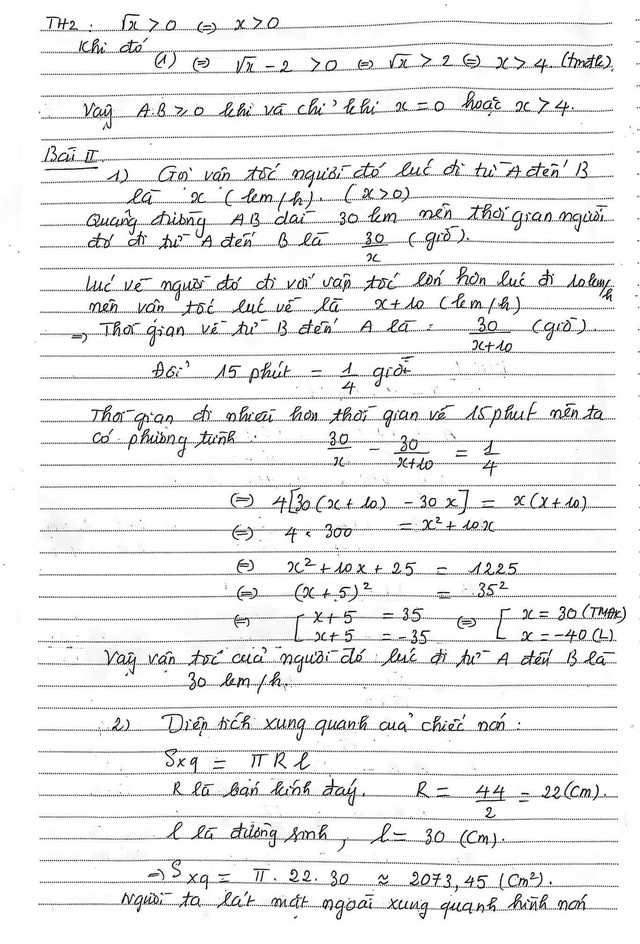 TH2: √x > 0 (=) x > 0
Khi đó
(1) (=) √x - 2 > 0 (=) √x > 2 (=) x > 4. (tmđk).
Vậy A.B ≥ 0 khi và chỉ khi x = 0 hoặc x > 4.
Bài II.
1) Gọi vận tốc người đó lúc đi từ A đến B
là x (km/h). (x > 0)
Quãng đường AB dài 30 km nên thời gian người
đó đi từ A đến B là 30/x (giờ).
Lúc về người đó đi với vận tốc lớn hơn lúc đi 10 km/h
nên vận tốc lúc về là x+10 (km/h)
=) Thời gian về từ B đến A là: 30/(x+10) (giờ).
Đổi 15 phút = 1/4 giờ
Thời gian đi nhiều hơn thời gian về 15 phút nên ta
có phương trình: 30/x - 30/(x+10) = 1/4
(=) 4[30(x+10) - 30x] = x(x+10)
(=) 4 . 300 = x² + 10x
(=) x² + 10x + 25 = 1225
(=) (x+5)² = 35²
(=) [ x+5 = 35 (=) [ x = 30 (TMĐK)
x+5 = -35 x = -40 (L)
Vậy vận tốc của người đó lúc đi từ A đến B là
30 km/h.
2) Diện tích xung quanh của chiếc nón:
Sxq = πRl
R là bán kính đáy. R = 44/2 = 22 (cm).
l là đường sinh, l = 30 (cm).
=) Sxq = π. 22. 30 ≈ 2073,45 (cm²).
Người ta lát mặt ngoài xung quanh hình nón